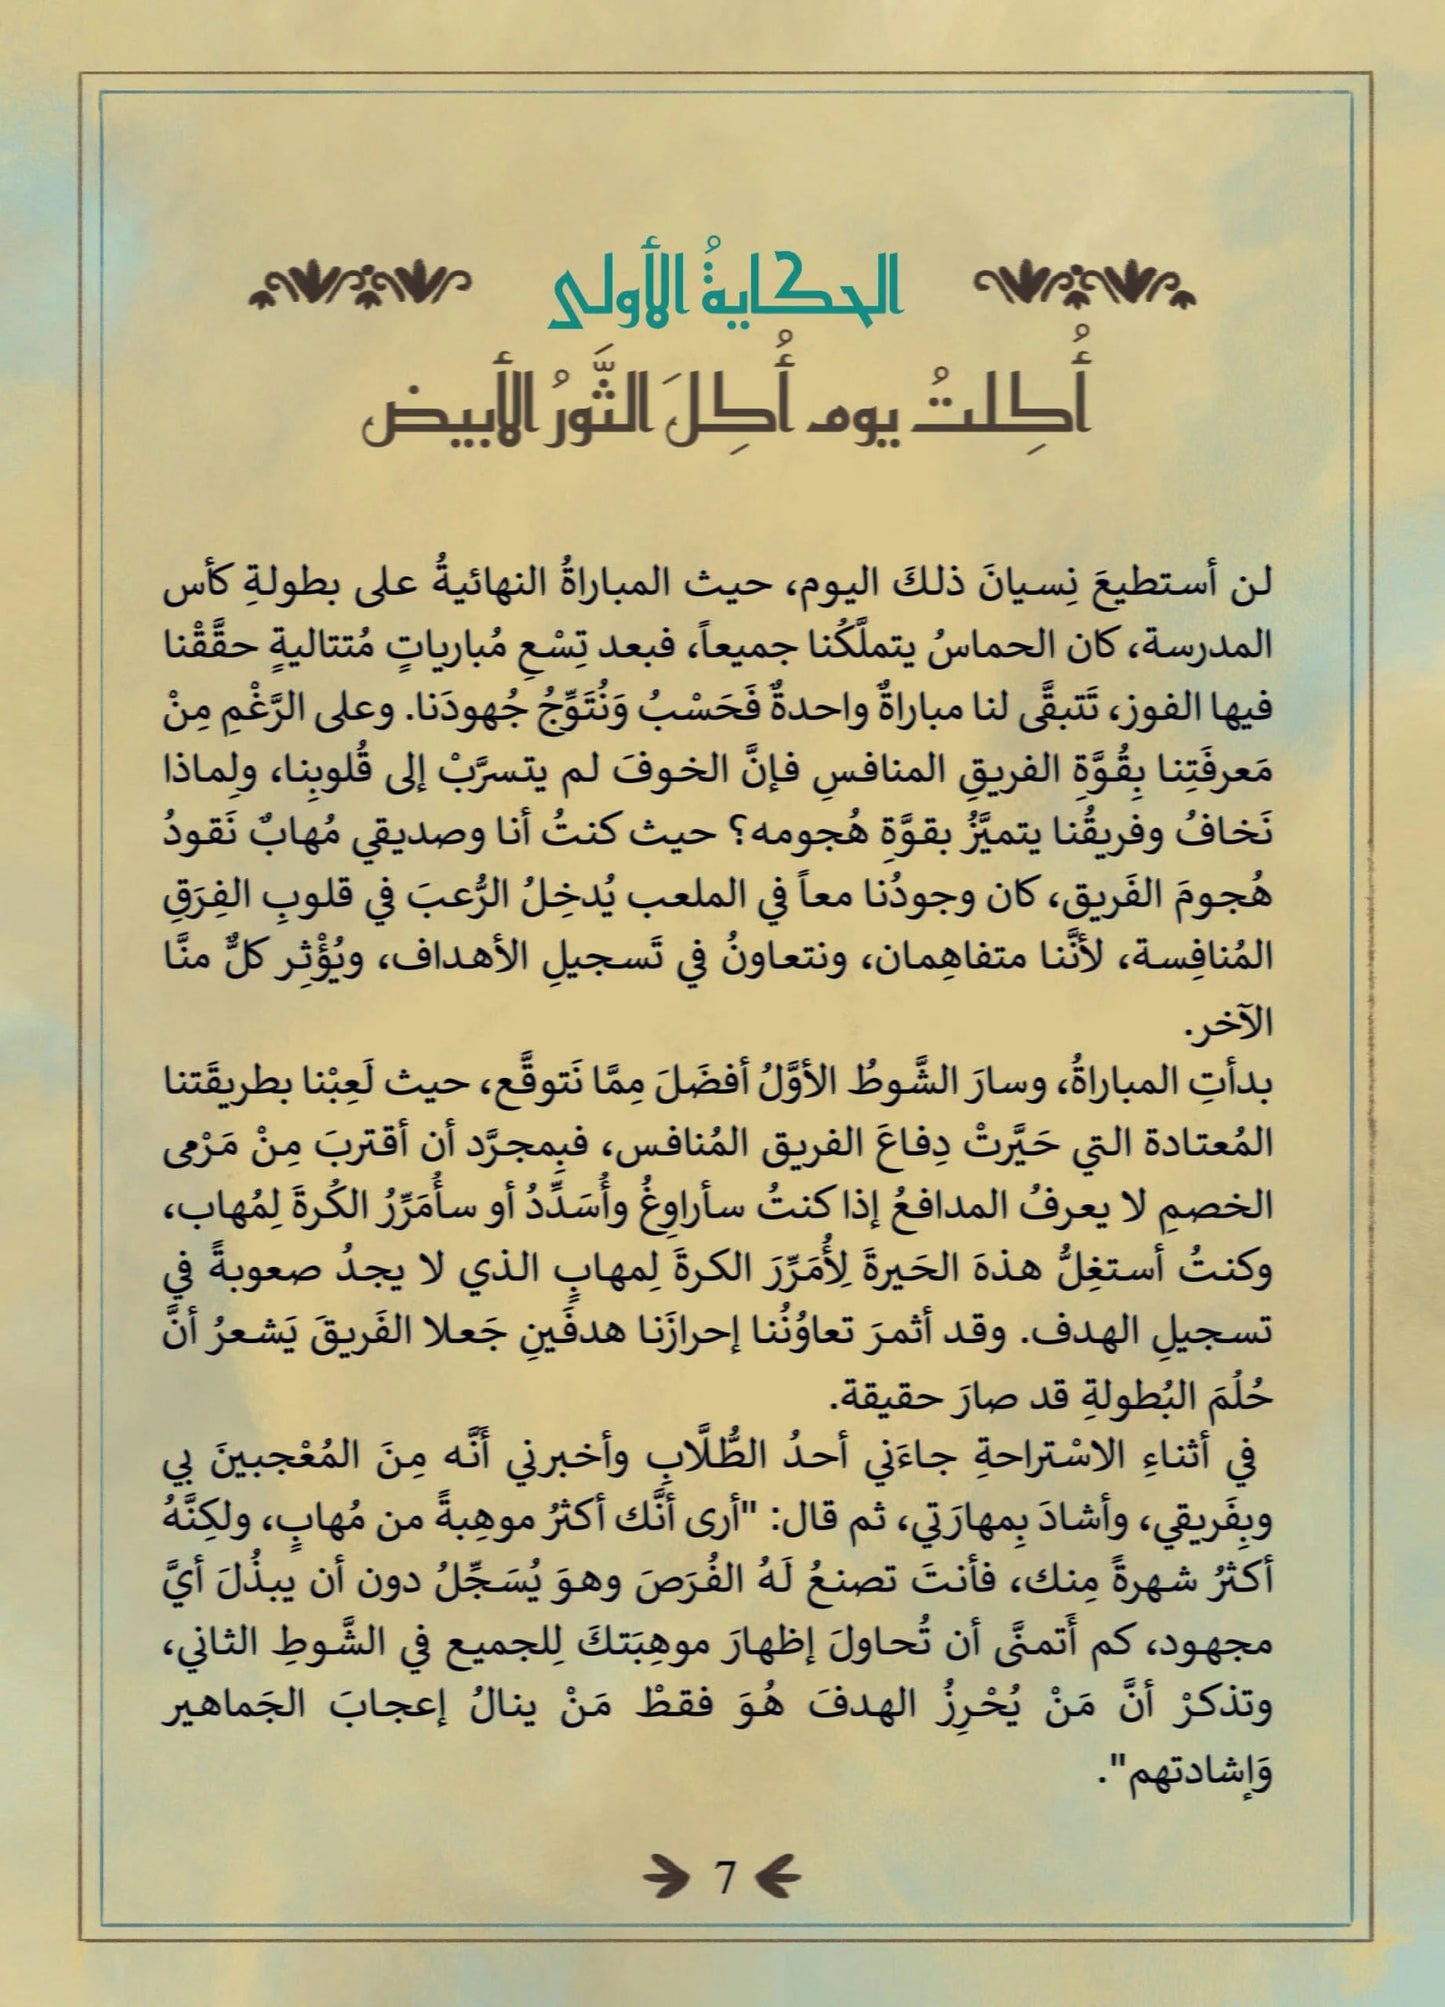 الحكايةُ الأولى
أُكِلتُ يوم أُكِلَ الثَّورُ الأبيض
لن أستطيعَ نِسيانَ ذلكَ اليوم، حيث المباراةُ النهائيةُ على بطولةِ كأس
المدرسة، كان الحماسُ يتملَّكُنا جميعاً، فبعد تِسْعِ مُبارياتٍ مُتتاليةٍ حقَّقْنا
فيها الفوز، تَتبقَّى لنا مباراةٌ واحدةٌ فَحَسْبُ وَنُتَوِّجُ جُهودَنا. وعلى الرَّغْمِ مِنْ
مَعرفَتِنا بِقُوَّةِ الفريقِ المنافسِ فإنَّ الخوفَ لم يتسرَّبْ إلى قُلوبِنا، ولِماذا
نَخافُ وفريقُنا يتميَّزُ بقوَّةِ هُجومه؟ حيث كنتُ أنا وصديقي مُهابٌ نَقودُ
هُجومَ الفَريق، كان وجودُنا معاً في الملعب يُدخِلُ الرُّعبَ في قلوبِ الفِرَقِ
المُنافِسة، لأنَّنا متفاهِمان، ونتعاونُ في تَسجيلِ الأهداف، ويُؤْثِر كلٌّ منَّا
الآخر.
بدأتِ المباراةُ، وسارَ الشَّوطُ الأوَّلُ أفضَلَ مِمَّا نَتوقَّع، حيث لَعِبْنا بطريقَتنا
المُعتادة التي حَيَّرتْ دِفاعَ الفريق المُنافس، فبِمجرَّد أن أقتربَ مِنْ مَرْمى
الخصمِ لا يعرفُ المدافعُ إذا كنتُ سأراوِغُ وأُسَدِّدُ أو سأُمَرِّرُ الكُرةَ لِمُهاب،
وكنتُ أستغِلُّ هذهَ الحَيرةَ لِأُمَرِّرَ الكرةَ لِمهابٍ الذي لا يجدُ صعوبةً في
تسجيلِ الهدف. وقد أثمرَ تعاوُنُنا إحرازَنا هدفَينِ جَعلا الفَريقَ يَشعرُ أنَّ
حُلُمَ البُطولةِ قد صارَ حقيقة.
في أثناءِ الاسْتراحةِ جاءَني أحدُ الطُّلَّابِ وأخبرني أَنَّه مِنَ المُعْجبينَ بي
وبِفَريقي، وأشادَ بِمهارَتي، ثم قال: "أرى أنَّك أكثرُ موهِبةً من مُهابٍ، ولكِنَّهُ
أكثرُ شهرةً مِنك، فأنتَ تصنعُ لَهُ الفُرَصَ وهوَ يُسَجِّلُ دون أن يبذُلَ أيَّ
مجهود، كم أَتمنَّى أن تُحاولَ إظهارَ موهِبَتكَ لِلجميع في الشَّوطِ الثاني،
وتذكرْ أنَّ مَنْ يُحْرِزُ الهدفَ هُوَ فقطْ مَنْ ينالُ إعجابَ الجَماهير
وَإشادتهم".
7